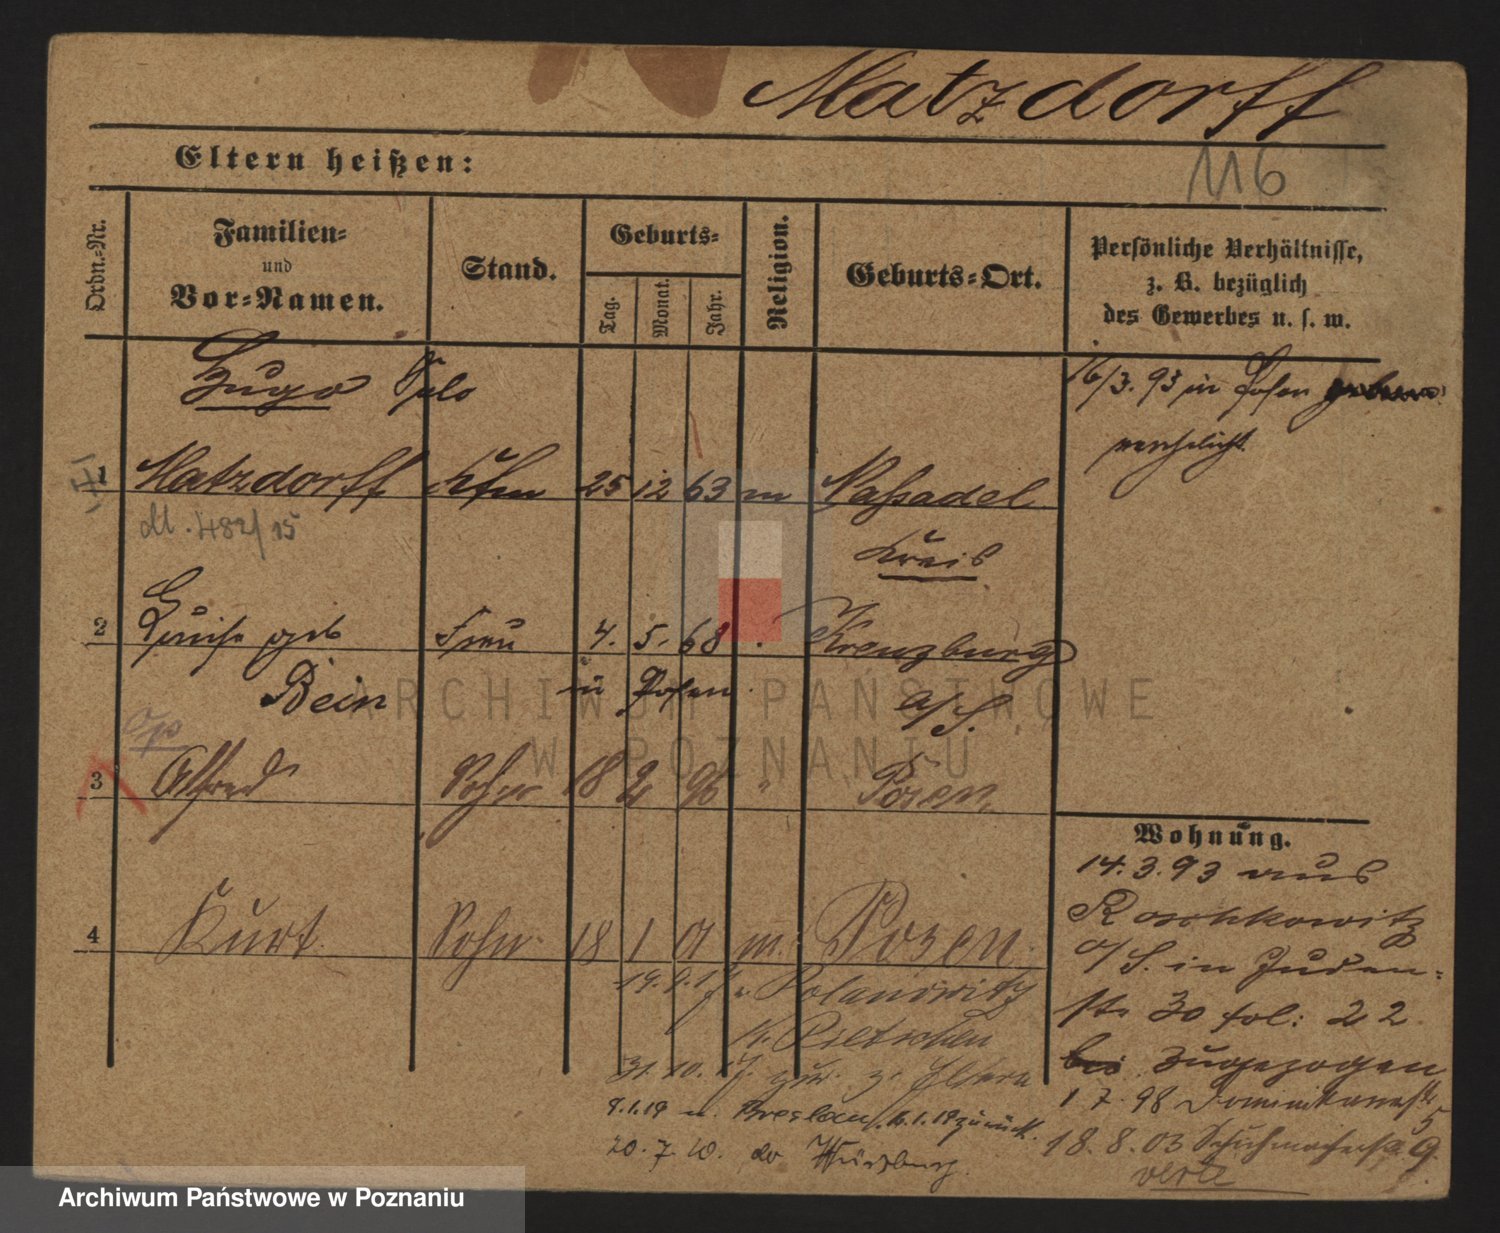 Matzdorff
116
Eltern heißen:
Ordn.-Nr.
Familien-
und
Vor-Namen.
Stand.
Geburts-
Tag.
Monat.
Jahr.
Religion.
Geburts-Ort.
Persönliche Verhältnisse,
z. B. bezüglich
des Gewerbes u. s. w.
Hugo
16/3. 93 in Posen
verehelicht
1 Matzdorff Kfm 25 12 63 m Nassadel
M. 482/15
Kreis
2 Luise geb Frau 4. 5. 68 Kreuzburg
Bein in Posen
O/S.
3 Alfred Sohn 18 2 96 " Posen
4 Kurt Sohn 18 1 m. Posen.
Polanowitz
K. Pitschen
31. 10. 17. zur. z. Eltern
9.1.19 n. Breslau, zurück.
20. 7. Würzburg.
Wohnung.
14. 3. 93 aus
Roschkowitz
O/S. in Juden-
str 30 fol: 22
zugezogen
1 7. 98 Dominikanerstr 5
18. 8. 03 Schuhmacherstr 9
ARCHIWUM PAŃSTWOWE
W POZNANIU
Archiwum Państwowe w Poznaniu